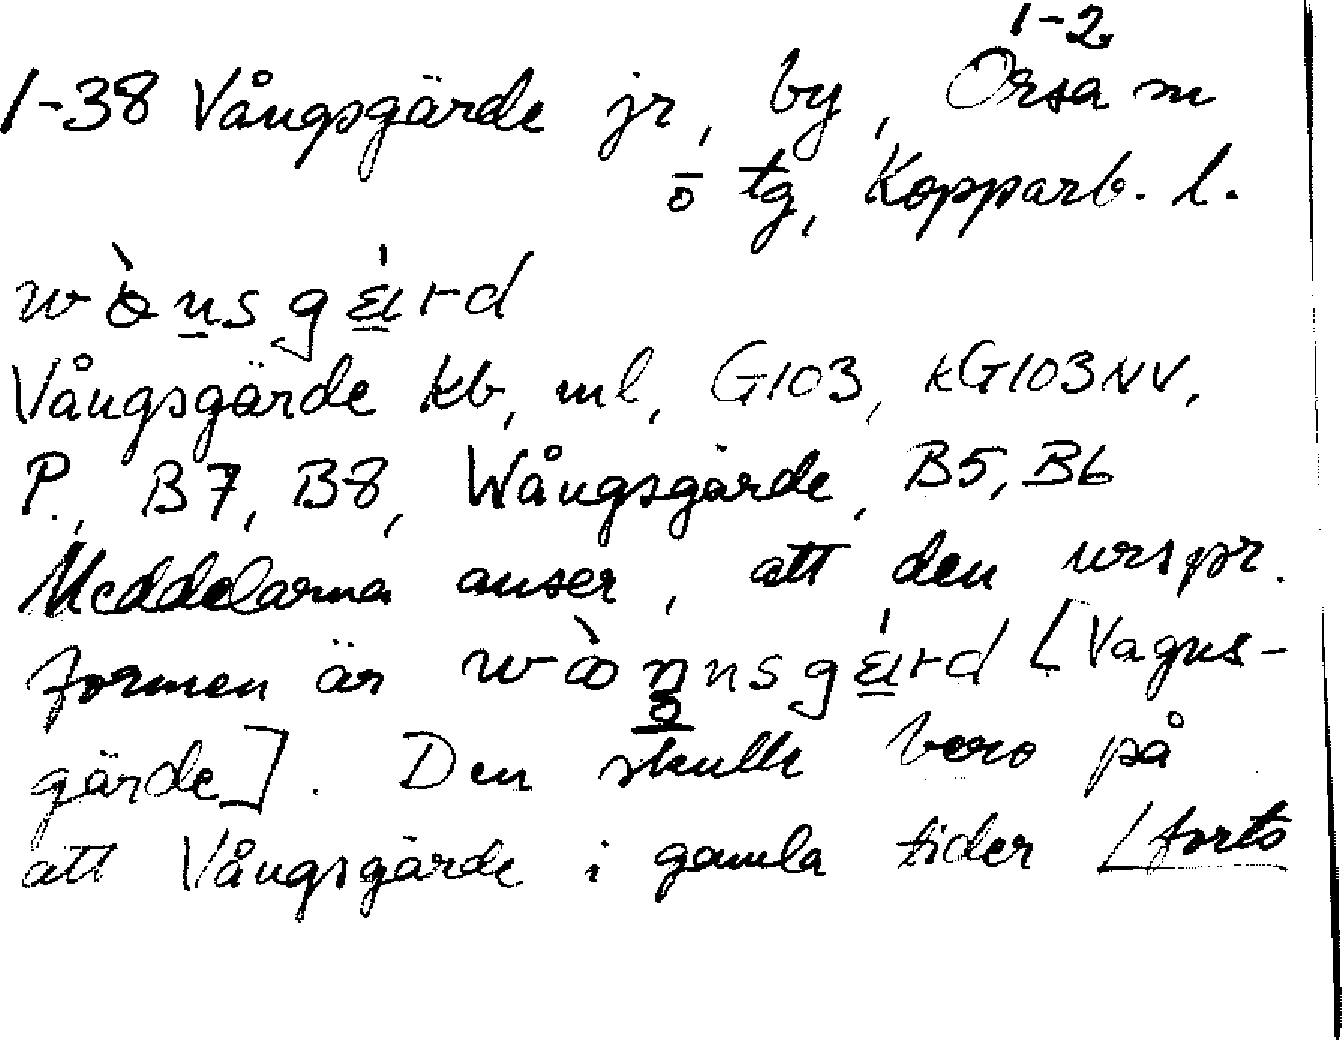 1-2
1-38 Vångsgärde jr, by, Orsa sn
o tg, Kopparb. l.
Vångsgärde kb, ml, G103, kG103NV,
P., B7, B8, Wångsgärde, B5, B6
Meddelarna anser, att den urspr.
formen är [Vagns-
gärde]. Den skulle bero på
att Vångsgärde i gamla tider [forts